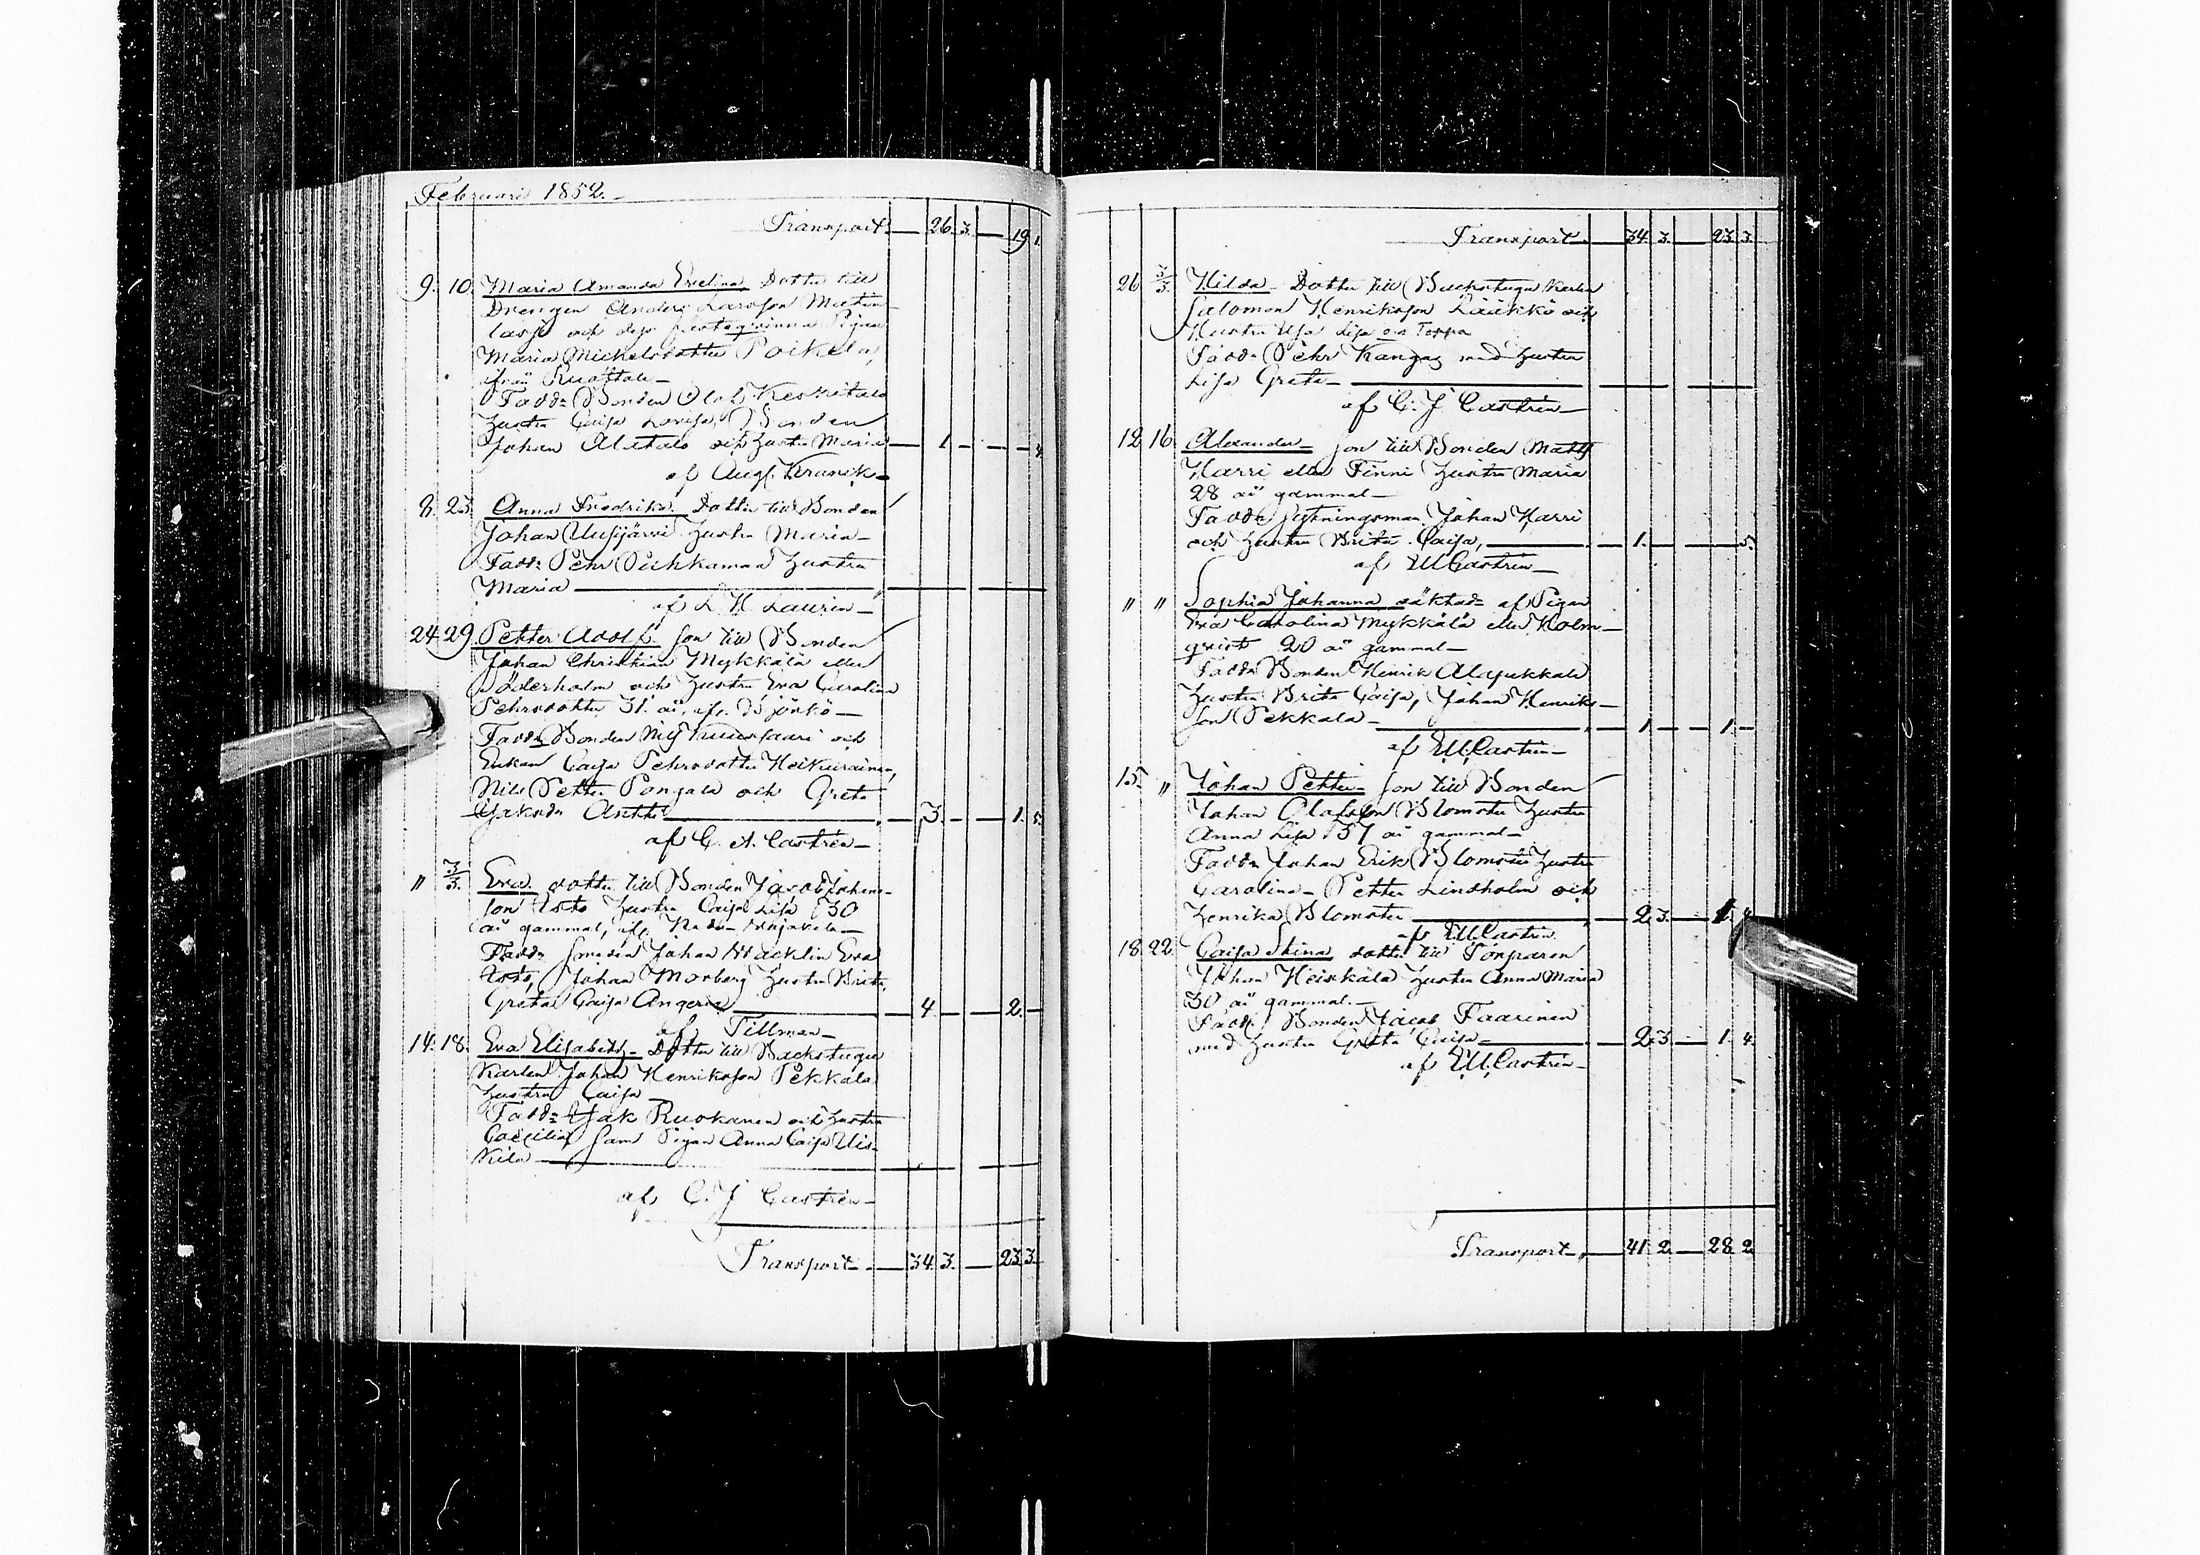 Februari 1852.
Transport 26. 3. 19 1.
9. 10. Maria Amanda Evelina Dotter till
Drengen Anders Larsson Mustin-
och dess Pigan
Maria Michelsdotter Poikela,
ifrån Ruottala
Fadd: Bonden Olof Keskitalo
hustru Caisa Lovisa, Bonden
Johan Alatalo och hustru Maria 1. 4
af Aug. Kranck
8. 23. Anna Fredrika Dotter till Bonden
Johan Uusijärvi hustru Maria
Fadd: Pehr Pichkamaa hustru
Maria
af L H Laurin
24 29. Petter Adolf Son till Bonden
Johan Christian Mykkälä eller
Söderholm och hustru Eva Carolina
Pehrsdotter 31. år, Björkö
Fadd: Bonden och
Enkan Caisa Pehrsdotter Heikurainen,
Nils Petter Pongala och Greta
Jakobs: Antti 3. 1. 5.
af C. A. Castrén
" 3/3. Eva dotter till Bonden Jacob Johans-
son Asto hustru Caisa Lisa 30
år gammal,
Fadd: Smeden Johan Wacklin Eva
Asto, Johan Morberg hustru Brita,
Greta Caisa Angeria 4. 2.
af Tillman
14. 18. Eva Elisabeth Dotter till Backstugu
Karlen Johan Henriksson Pekkala
hustru Caisa
Fadd: Isak Ruokanen och hustru
Caecilia samt Pigan Anna Caisa Uis-
kila
af C. J Castrén
Transport 34. 3. 23 3.
Transport 34. 3. 23 3.
26 3/3. Hilda Dotter till Backstugu Karlen
Salomon Henriksson Lääkkö och
Hustru Ulla Lisa Toppa
Fadd: Pehr Kangas med hustru
Lisa Greta
af C. J Castrén
12. 16. Alexander Son till Bonden Matts
Harri eller Finni hustru Maria
28 år gammal
Fadd: Johan Harri
och hustru Brita Caisa, 1. 5.
af E.U. Castrén
" " Sophia Johanna oäkta af Pigan
Eva Carolina Mykkälä eller Holm-
qvist 20 år gammal
Fadd: Bonden Henrik Alapekkala
hustru Brita Caisa, Johan Henriks-
son Pekkala 1. 1.
af E.U. Castrén
15. " Johan Petter Son till Bonden
Johan Olofsson Blomster hustru
Anna Lisa 37 år gammal
Fadd: Johan Erik Blomster hustru
Carolina Petter Lindholm och
Henrika Blomster 2. 3. 1.
af E.U. Castrén
18. 22. Caisa Stina dotter till Torparen
Johan Heiskala hustru Anna Maria
30 år gammal
Fadd: Bonden Jacob Faarinen
med hustru Greta Caisa 2. 3. 1. 4.
af E.U. Castrén
Transport 41. 2. 28. 2.